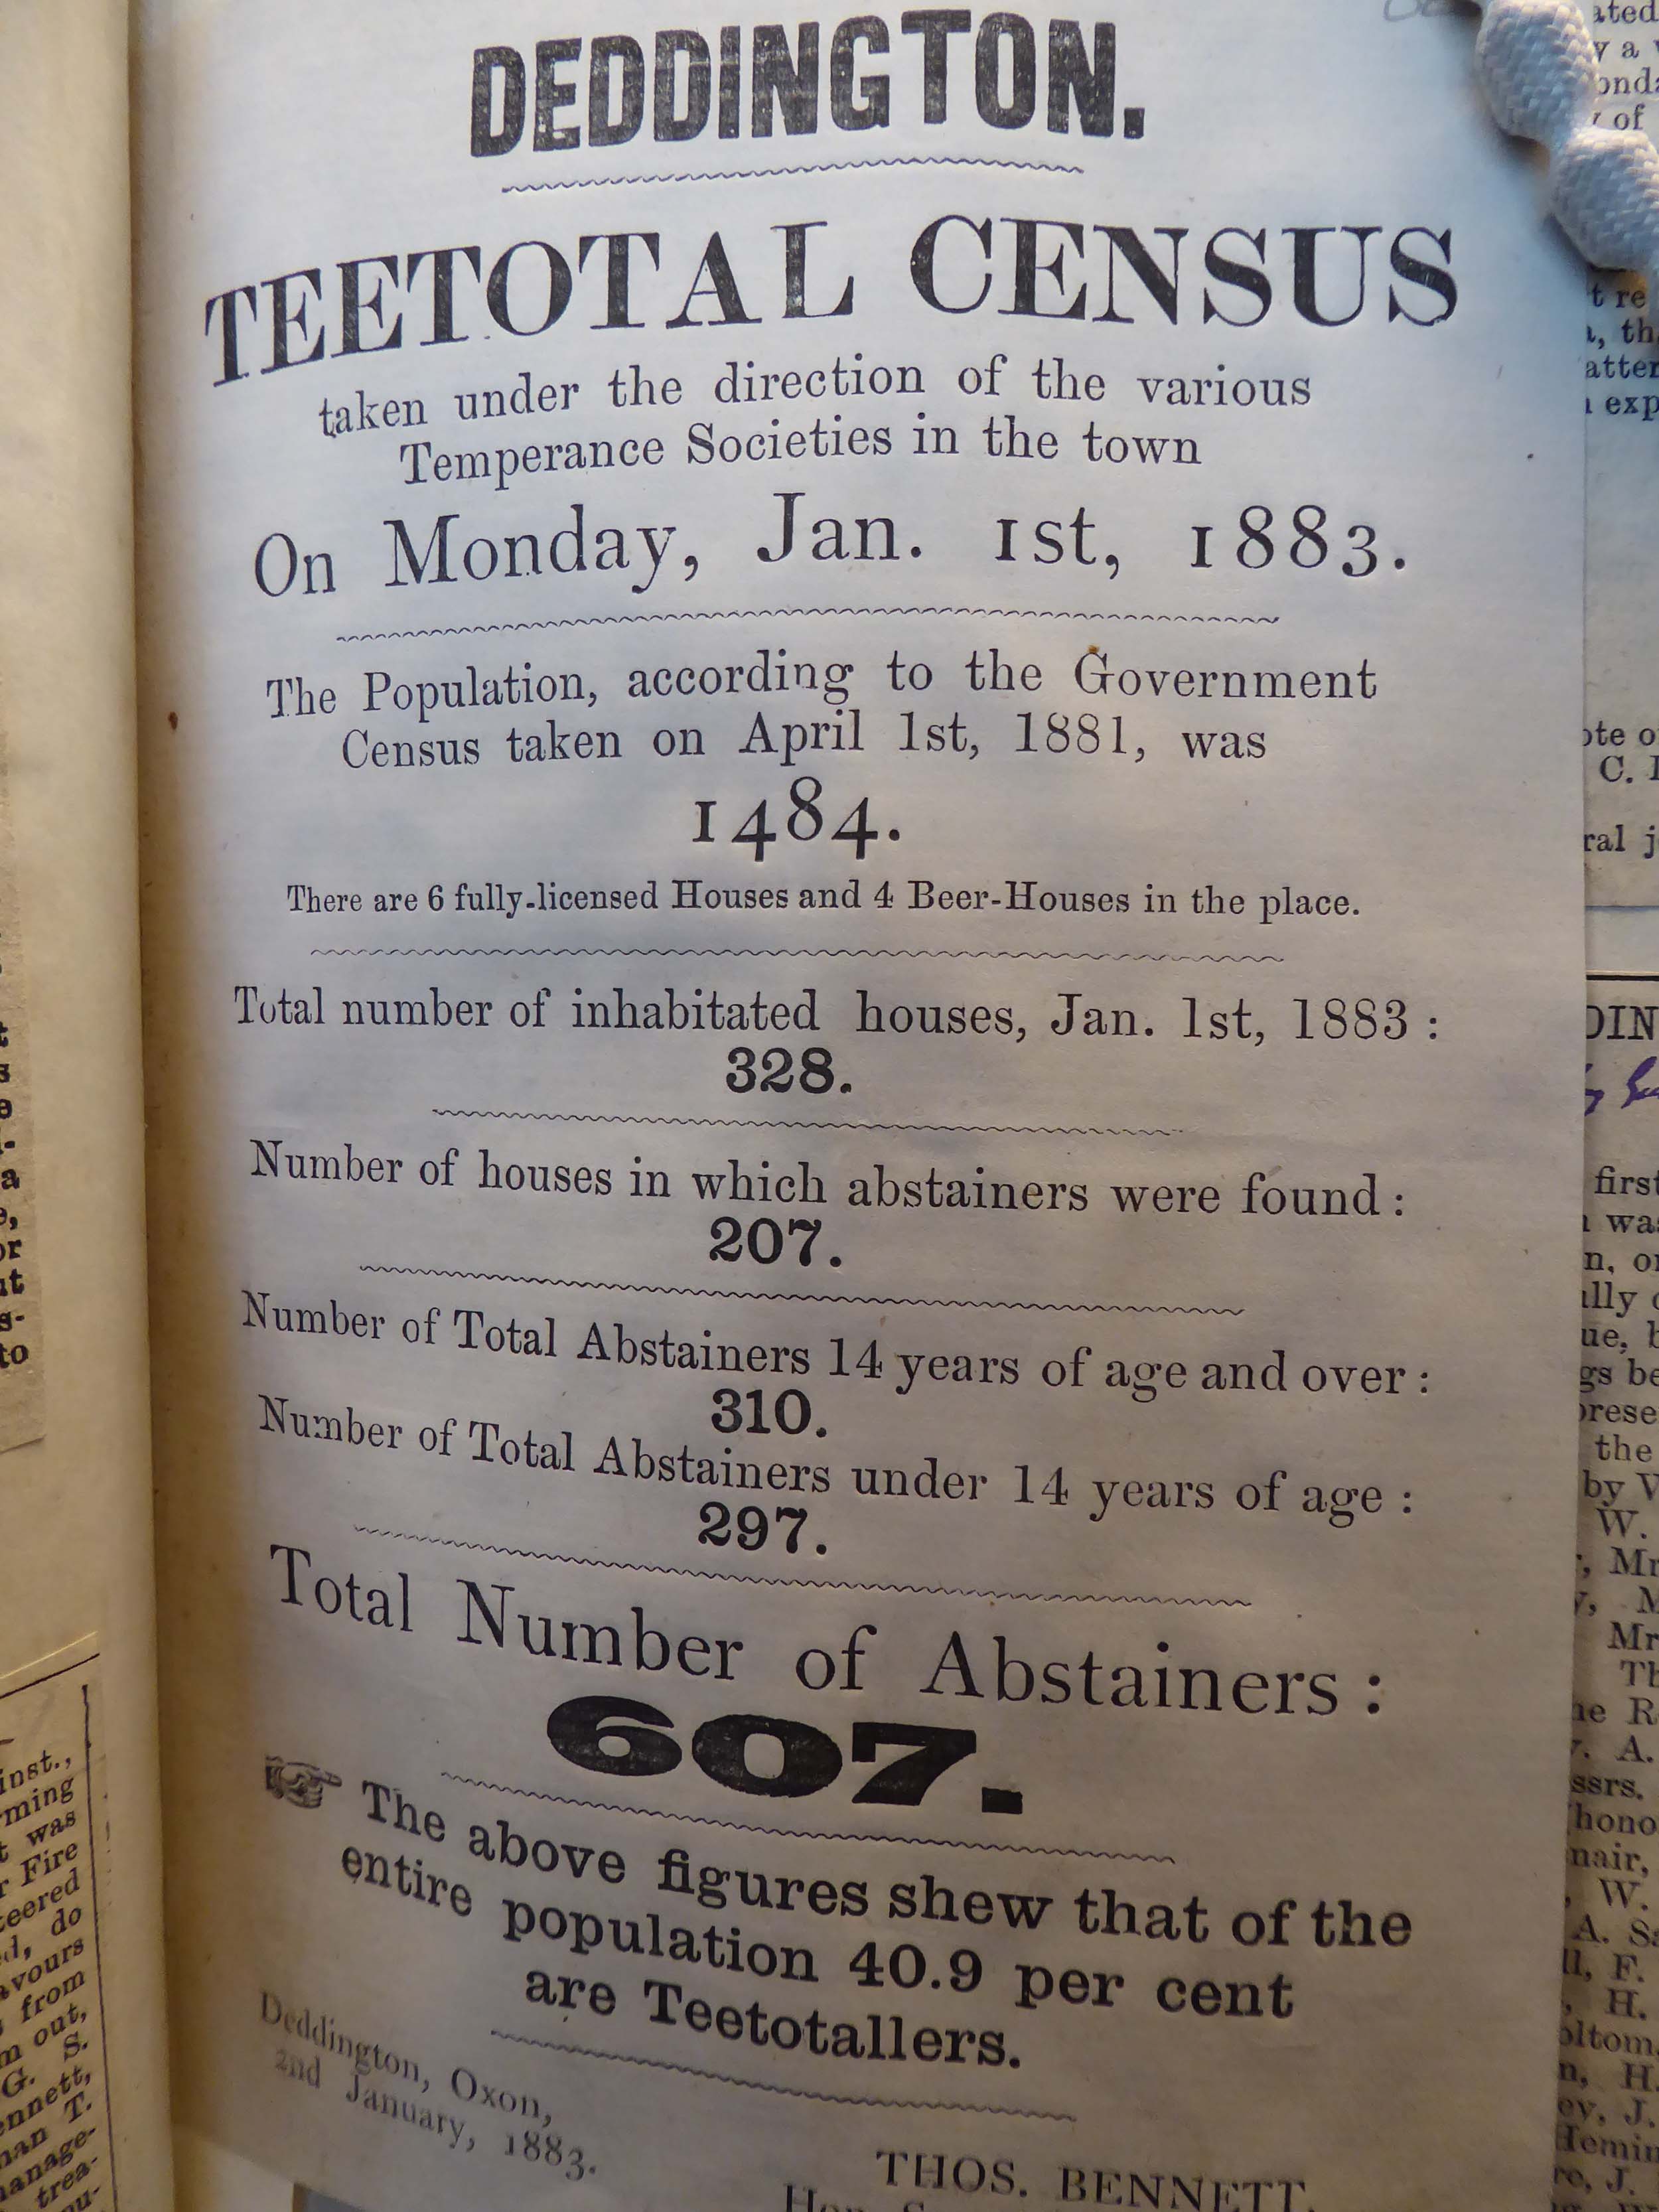 DEDDINGTON.
TEETOTAL CENSUS
taken under the direction of the various
Temperance Societies in the town
On Monday, Jan. 1st, 1883.
The Population, according to the Government
Census taken on April 1st, 1881, was
1484.
There are 6 fully-licensed Houses and 4 Beer-Houses in the place.
Total number of inhabitated houses, Jan. 1st, 1883 :
328.
Number of houses in which abstainers were found :
207.
Number of Total Abstainers 14 years of age and over :
310.
Number of Total Abstainers under 14 years of age :
297.
Total Number of Abstainers :
607.
☞ The above figures shew that of the
entire population 40.9 per cent
are Teetotallers.
Deddington, Oxon,
2nd January, 1883.
THOS. BENNETT,
inst.,
was
Fire
do
from
out,
G. S.
T.
to
of
y a
of
t re
exp
C.
ral j
first
the
by
W.
Mr
A.
W.
F.
H.
H.
J.
J.